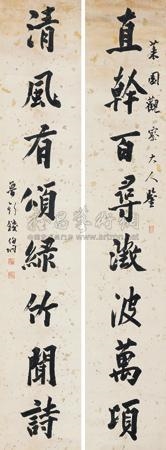 莱園觀察大人鑒
直幹百尋澂波萬頃
清風有頌綠竹聞詩